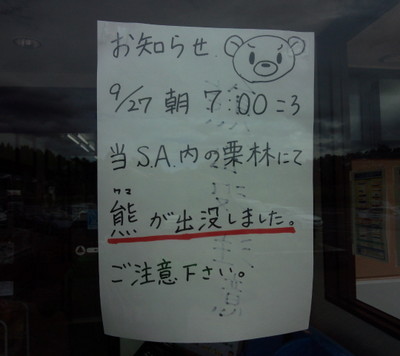 お知らせ
9/27 朝 7:00ころ
当 S.A.内の栗林にて
クマ
熊が出没しました。
ご注意下さい。